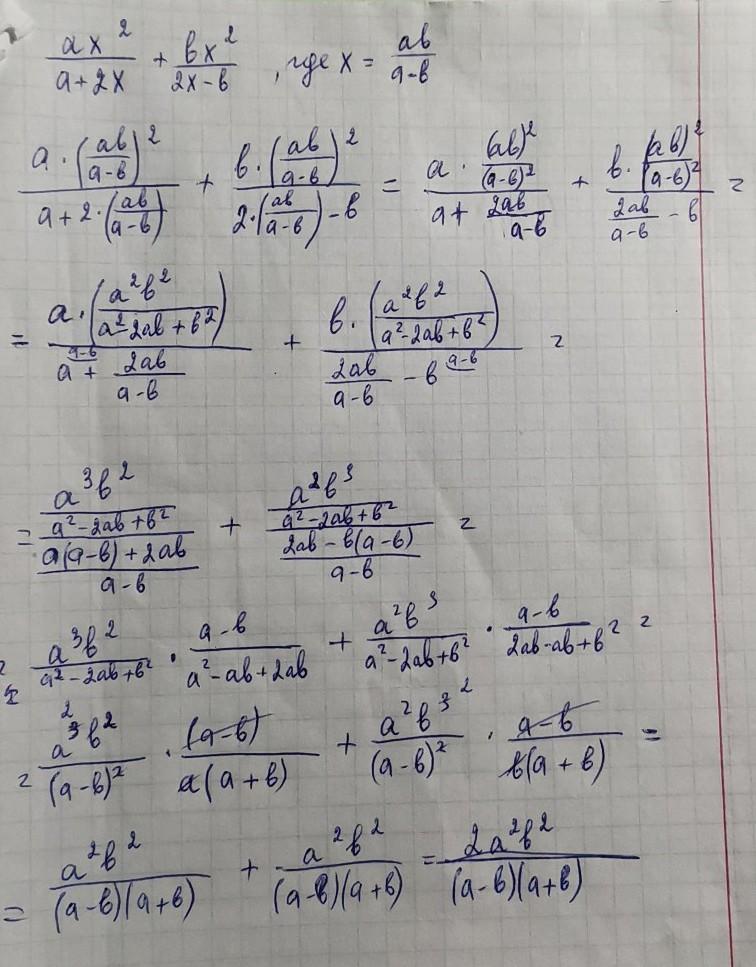 ax²/(a+2x) + bx²/(2x-b) , где x = ab/(a-b)
(a·(ab/(a-b))²)/(a+2·(ab/(a-b))) + (b·(ab/(a-b))²)/(2·(ab/(a-b))-b) = (a·(ab)²/(a-b)²)/(a+2ab/(a-b)) + (b·(ab)²/(a-b)²)/(2ab/(a-b)-b) =
= (a·(a²b²/(a²-2ab+b²)))/(a^(a-b)+2ab/(a-b)) + (b·(a²b²/(a²-2ab+b²)))/(2ab/(a-b)-b^(a-b)) =
= (a³b²/(a²-2ab+b²))/((a(a-b)+2ab)/(a-b)) + (a²b³/(a²-2ab+b²))/((2ab-b(a-b))/(a-b)) =
= a³b²/(a²-2ab+b²) · (a-b)/(a²-ab+2ab) + a²b³/(a²-2ab+b²) · (a-b)/(2ab-ab+b²) =
= a³b²/(a-b)² · (a-b)/(a(a+b)) + a²b³/(a-b)² · (a-b)/(b(a+b)) =
= a²b²/((a-b)(a+b)) + a²b²/((a-b)(a+b)) = 2a²b²/((a-b)(a+b))